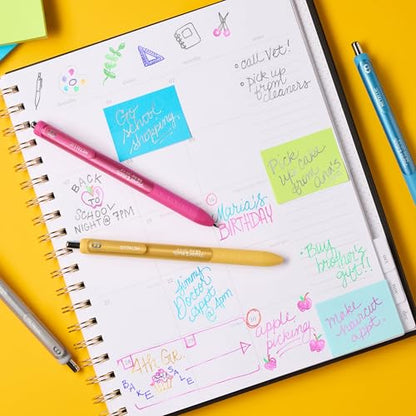 • call Vet!
• Pick up
from
cleaners
Go
school
shopping
Pick cake
up from
ana's!
BACK
to
SCHOOL
NIGHT @ 7PM
Maria's
BIRTHDAY
Buy
brother's
gift!!
Jimmy
Doctor
appt
@ 4pm
apple
picking
make
haircut
appt.
4th GR.
BAKE SALE